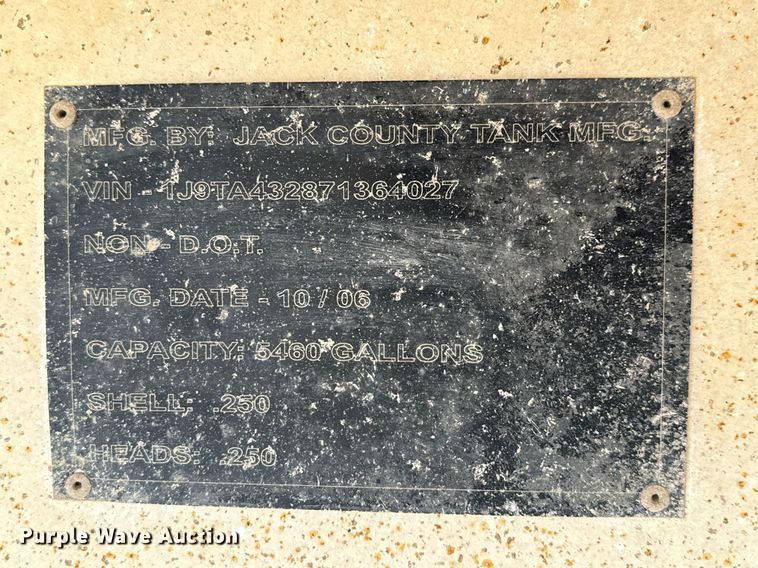 MFG. BY: JACK COUNTY TANK MFG.
VIN - 1J9TA432871364027
NON - D.O.T.
MFG. DATE - 10 / 06
CAPACITY: 5460 GALLONS
SHELL: .250
HEADS: .250
Purple Wave Auction